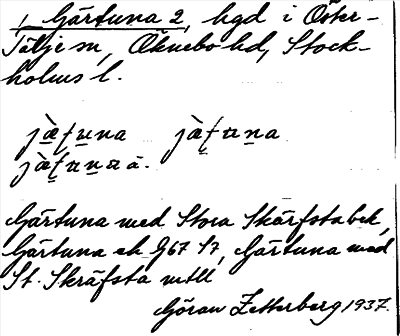 1, Gärtuna 2, hgd i Öster-
Tälje sn, Öknebo hd, Stock-
holms l.
jæ̀ʈuna jàʈuna
jàʈuna ä.
Gärtuna med Stora Skärfsta bek,
Gärtuna ek G67 S7, Gärtuna med
St. Skräfsta mtll
Göran Zetterberg 1937.